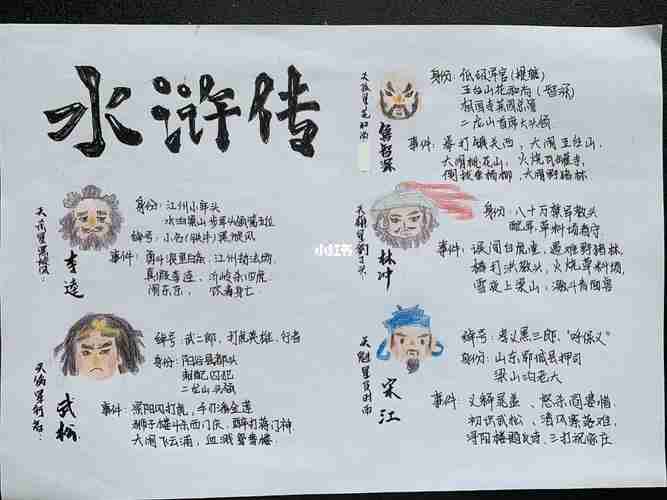 水浒传
天杀星黑旋风:
李逵
身份: 江州小牢头
水泊梁山步军头领第五位
绰号: 小名(铁牛) 黑旋风
事件: 斗浪里白条、江州劫法场
真假李逵、沂岭杀四虎
闹东京、饮毒身亡
天伤星行者:
武松
绰号: 武二郎、打虎英雄、行者
身份: 阳谷县都头
刺配囚犯
二龙山头领
事件: 景阳冈打虎, 手刃潘金莲
狮子楼斗杀西门庆、醉打蒋门神
大闹飞云浦, 血溅鸳鸯楼
天孤星花和尚
鲁智深
身份: 低级军官(提辖)
五台山花和尚(智深)
相国寺菜园
二龙山首席大头领
事件: 拳打镇关西, 大闹五台山,
大闹桃花山, 火烧瓦罐寺
倒拔垂杨柳, 大闹野猪林
小红书
天雄星豹子头
林冲
身份: 八十万禁军教头
草料场看守
事件: 误闯白虎堂, 遇难野猪林
棒打洪教头, 火烧草料场
雪夜上梁山,
天魁星及时雨
宋江
绰号: 孝义黑三郎、"呼保义"
身份: 山东郓城县押司
梁山泊老大
事件: 义释晁盖、怒杀阎婆惜
初识武松、清风寨落难,
浔阳楼题反诗、三打祝家庄